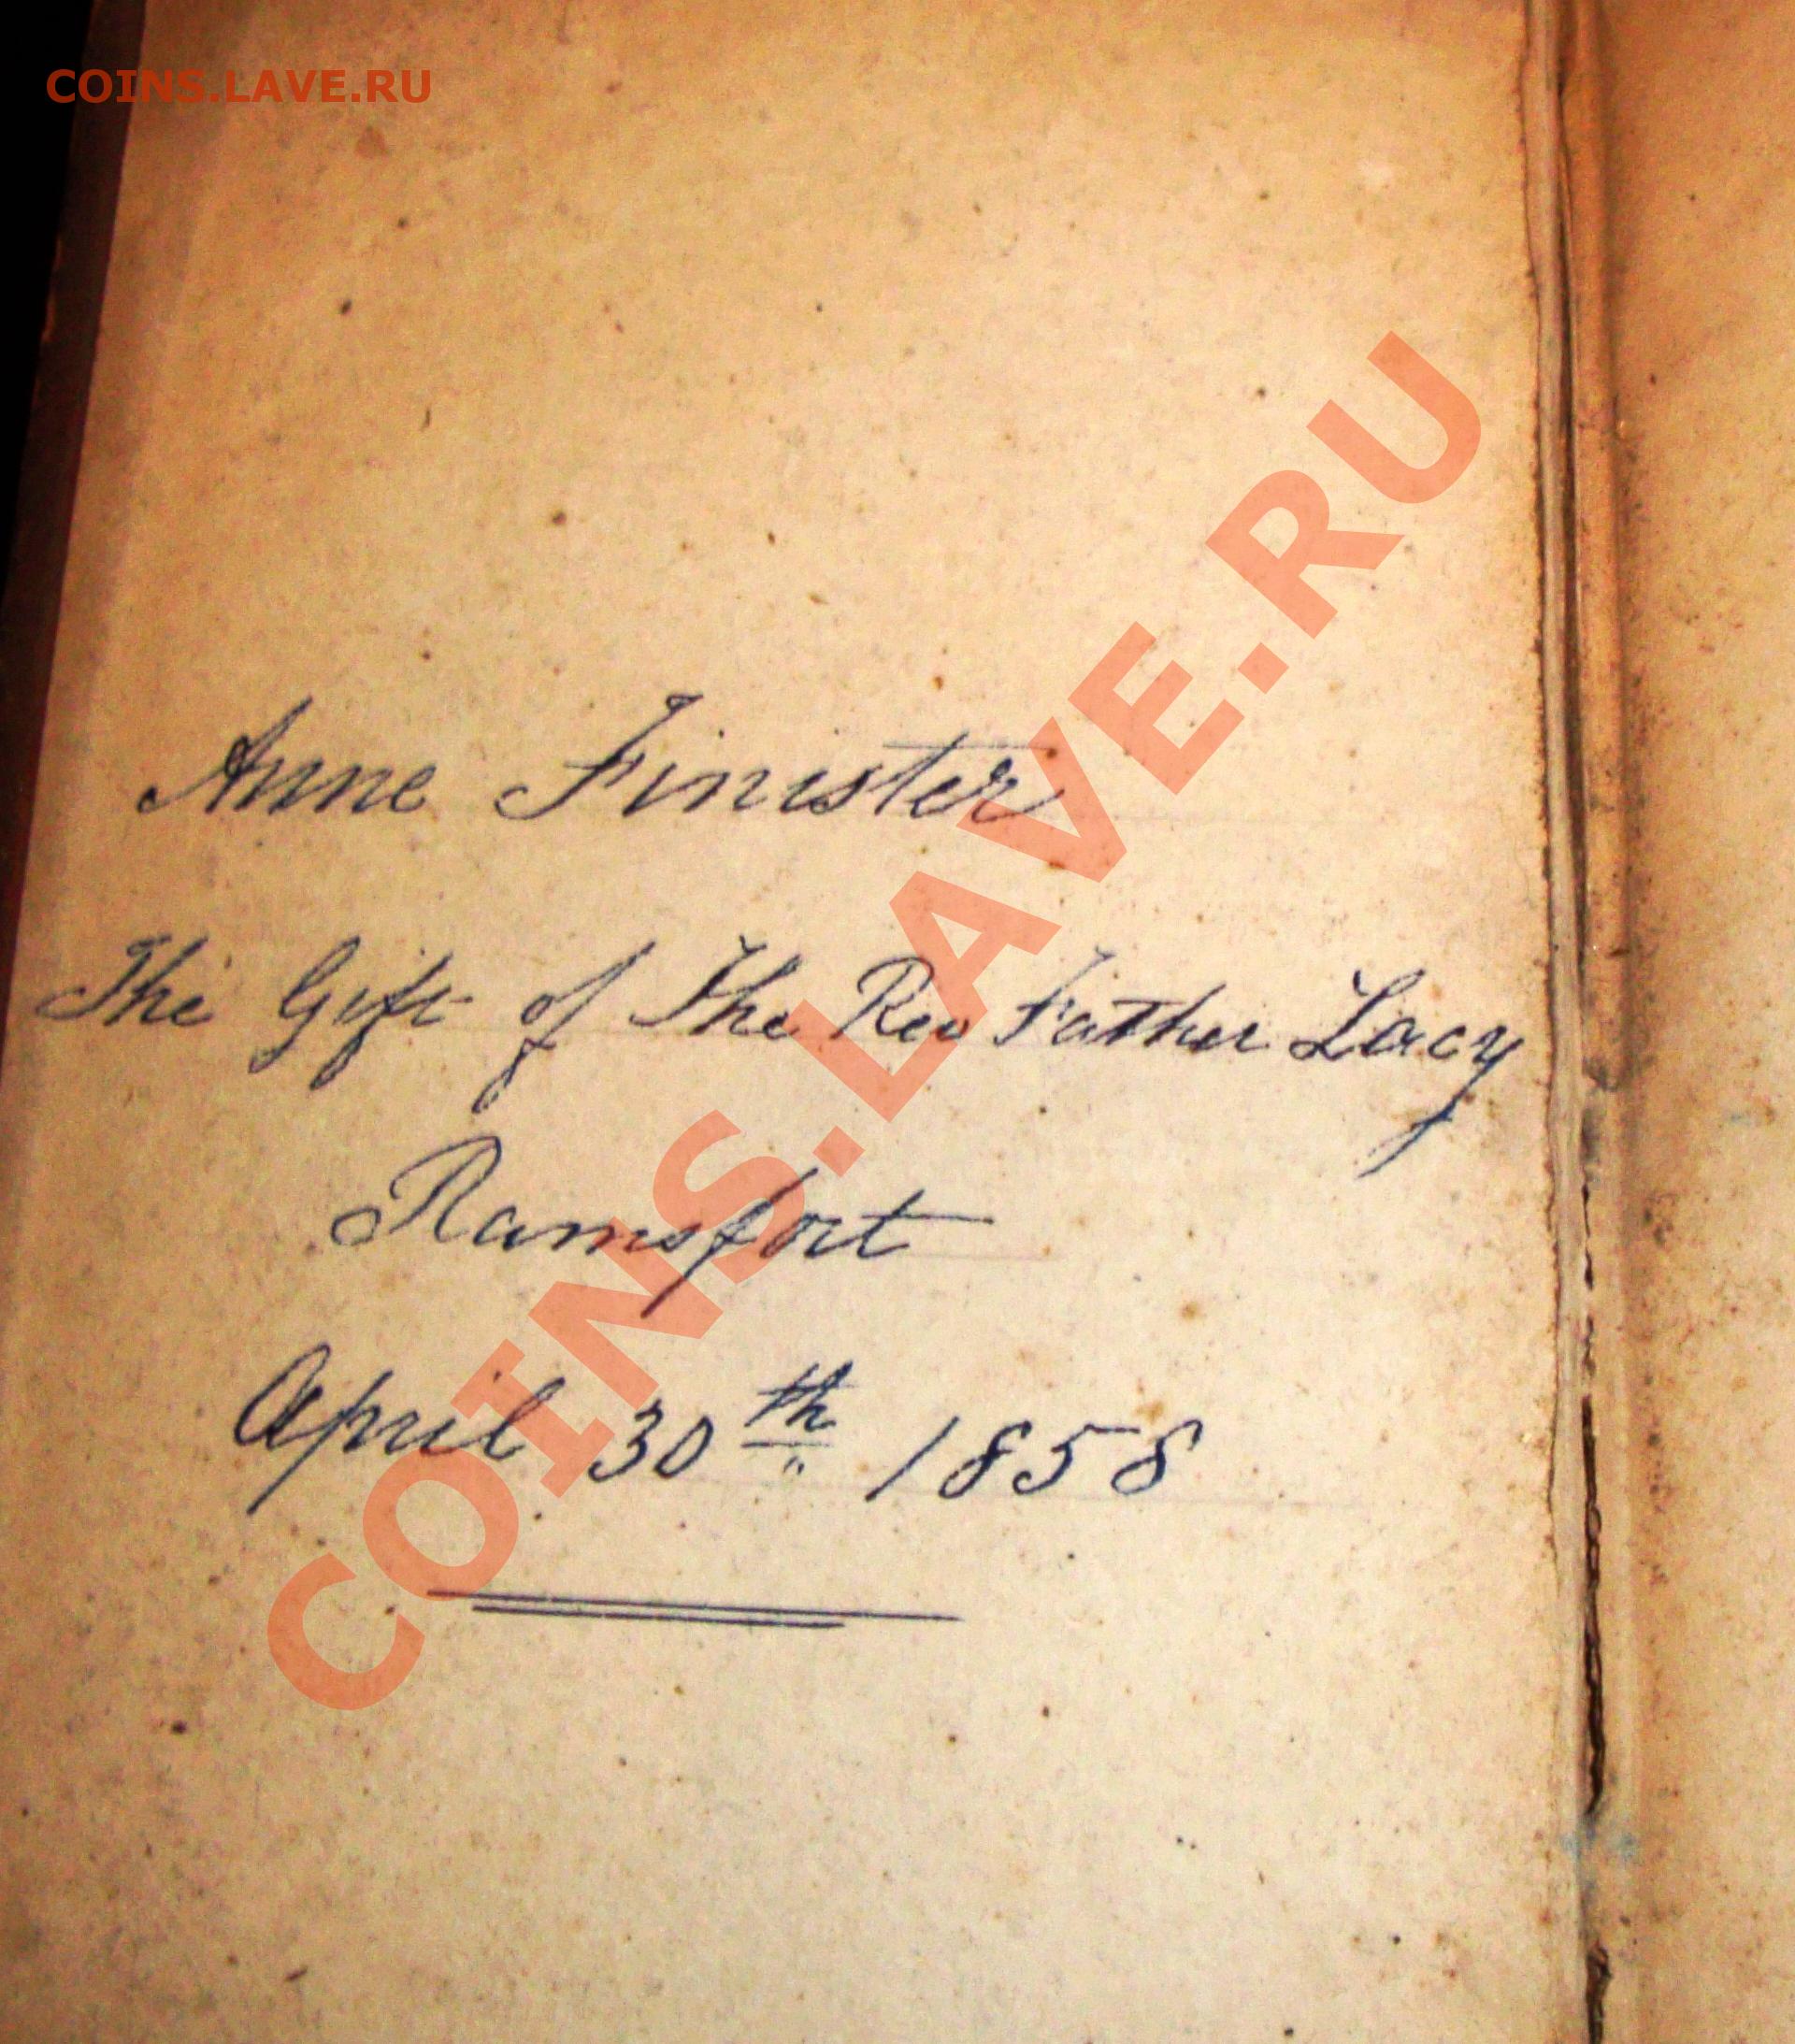 COINS.LAVE.RU
Anne Finister
The Gift of The Rev Father Lacy
Ramsfort
April 30th 1858
COINS.LAVE.RU